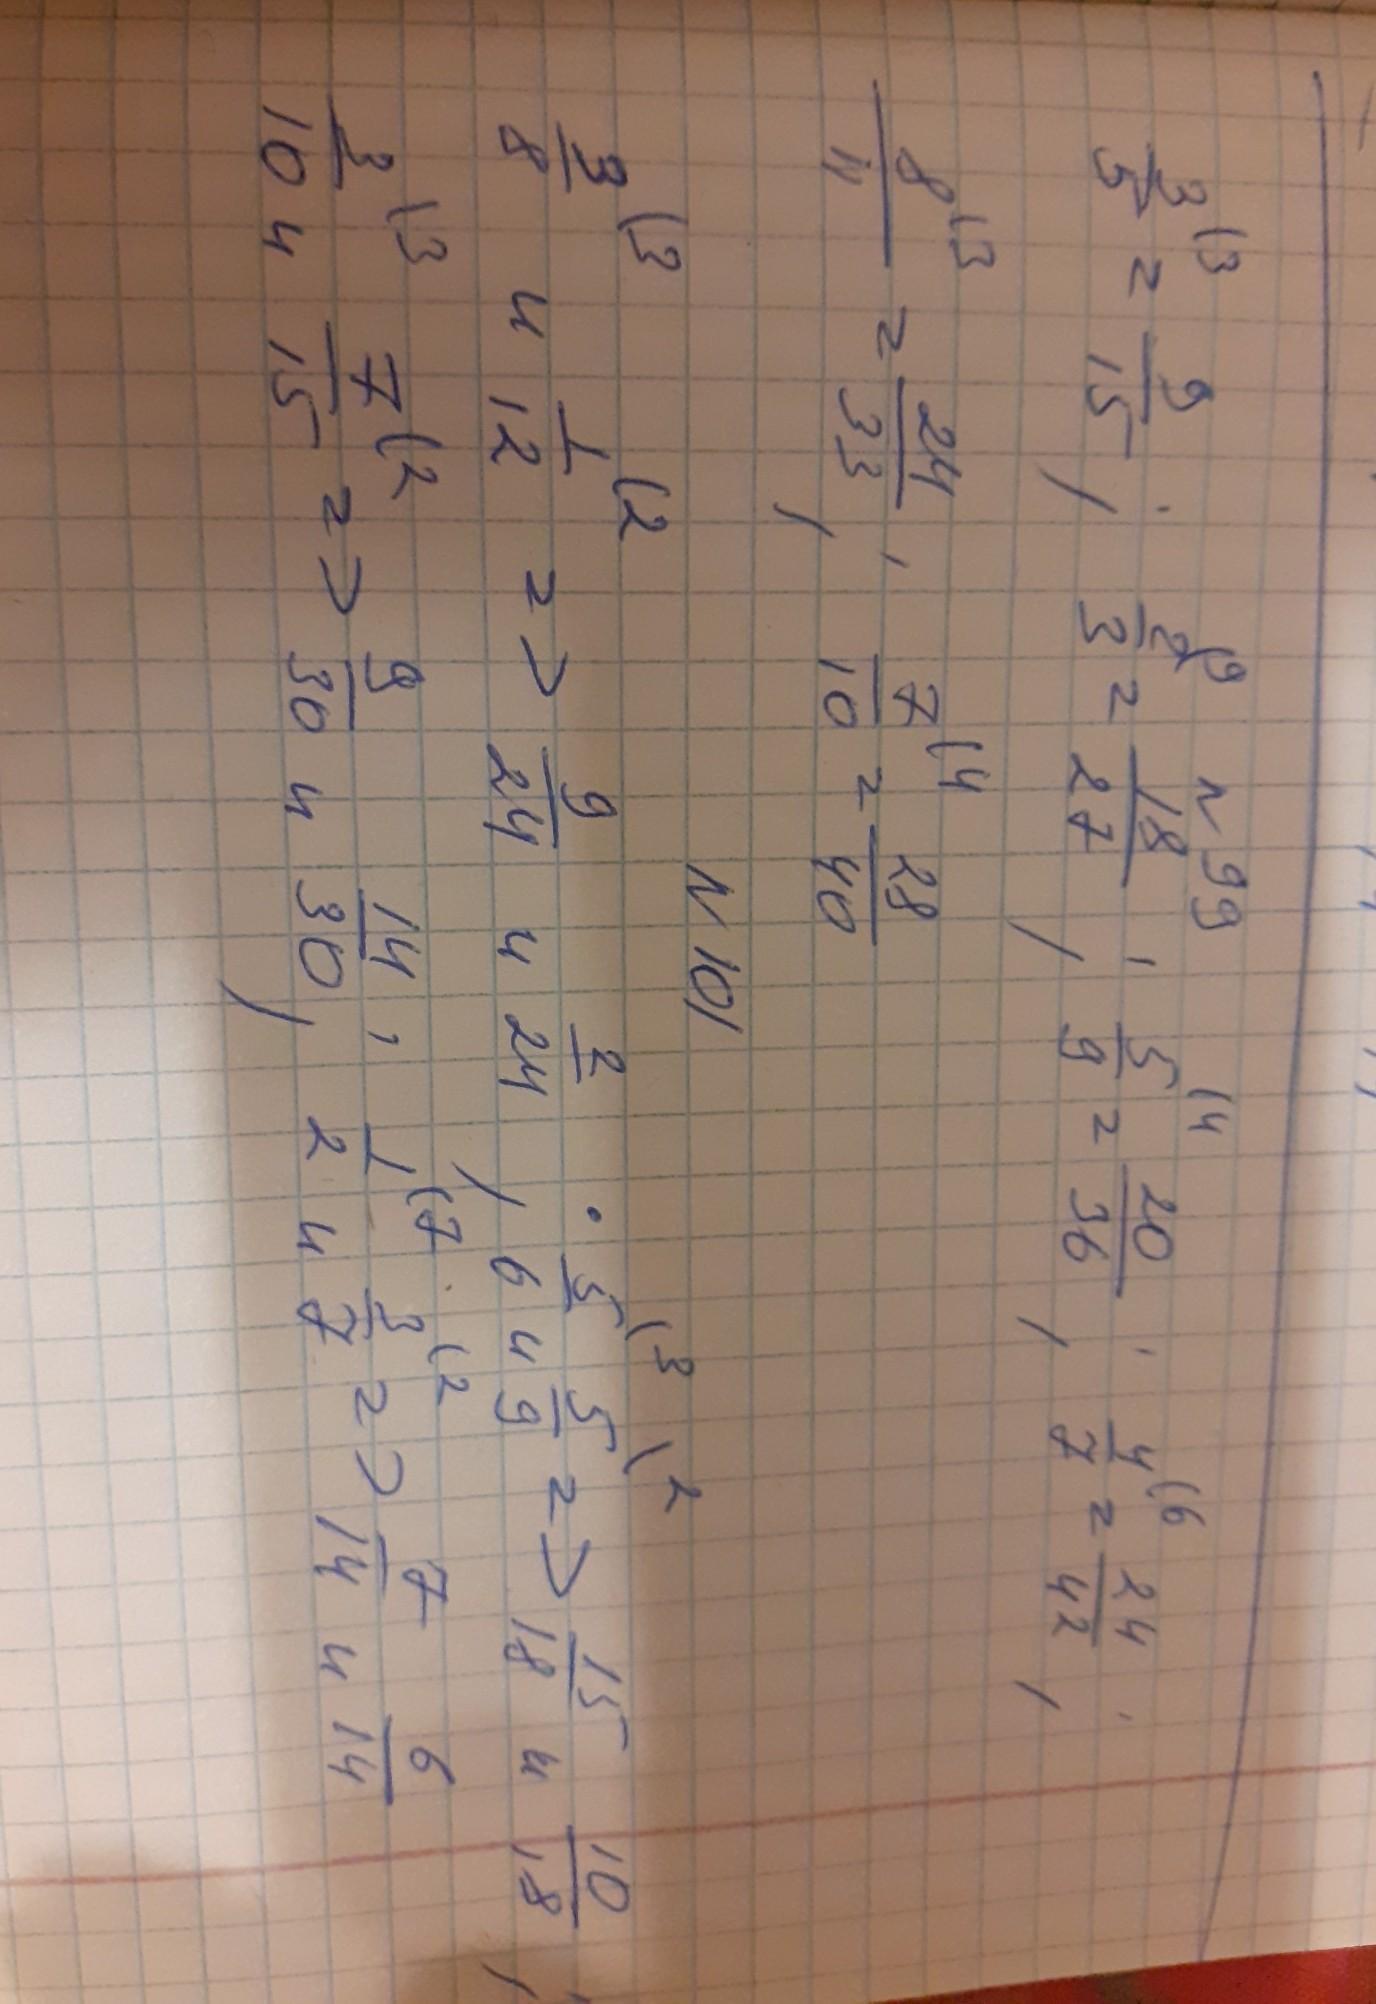 N 99
3/5 (3 = 9/15; 2/3 (9 = 18/27; 5/9 (4 = 20/36; 4/7 (6 = 24/42;
8/11 (3 = 24/33; 7/10 (4 = 28/40
N 101
3/8 (3 и 1/12 (2 => 9/24 и 2/24; 5/6 (3 и 5/9 (2 => 15/18 и 10/18;
3/10 (3 и 7/15 (2 => 9/30 и 14/30; 1/2 (7 и 3/7 (2 => 7/14 и 6/14